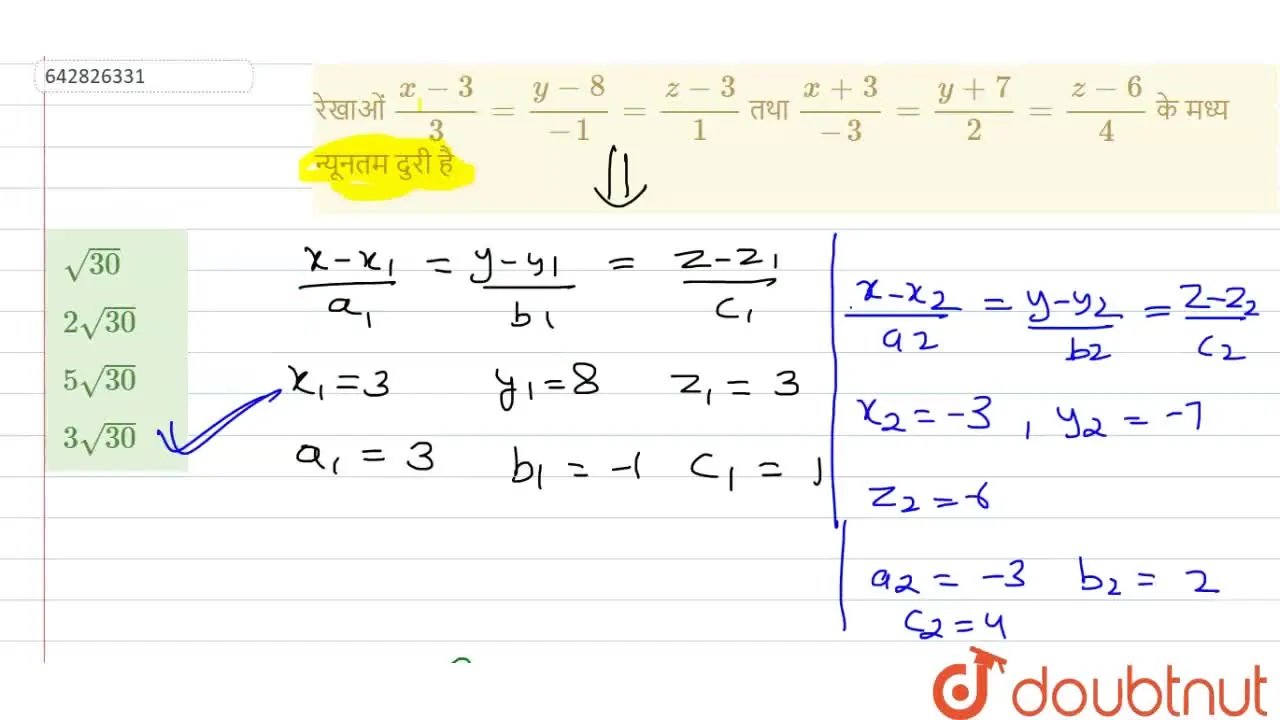 642826331
रेखाओं \frac{x-3}{3} = \frac{y-8}{-1} = \frac{z-3}{1} तथा \frac{x+3}{-3} = \frac{y+7}{2} = \frac{z-6}{4} के मध्य
न्यूनतम दुरी है
√30
2√30
5√30
3√30
\frac{x-x_1}{a_1} = \frac{y-y_1}{b_1} = \frac{z-z_1}{c_1}
x_1 = 3 y_1 = 8 z_1 = 3
a_1 = 3 b_1 = -1 c_1 = 1
\frac{x-x_2}{a_2} = \frac{y-y_2}{b_2} = \frac{z-z_2}{c_2}
x_2 = -3 , y_2 = -7
z_2 = 6
a_2 = -3 b_2 = 2
c_2 = 4
doubtnut